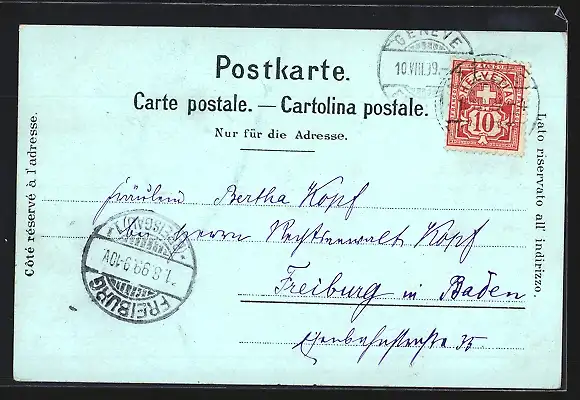 Postkarte.
Carte postale. — Cartolina postale.
Nur für die Adresse.
Côté réservé à l'adresse.
Lato riservato all' indirizzo.
GENÈVE
10.VIII.99.
HELVETIA
10
Fräulein Bertha Kopf
bei Herrn Rechtsanwalt Kopf
Freiburg in Baden
Eisenbahnstraße 35
FREIBURG